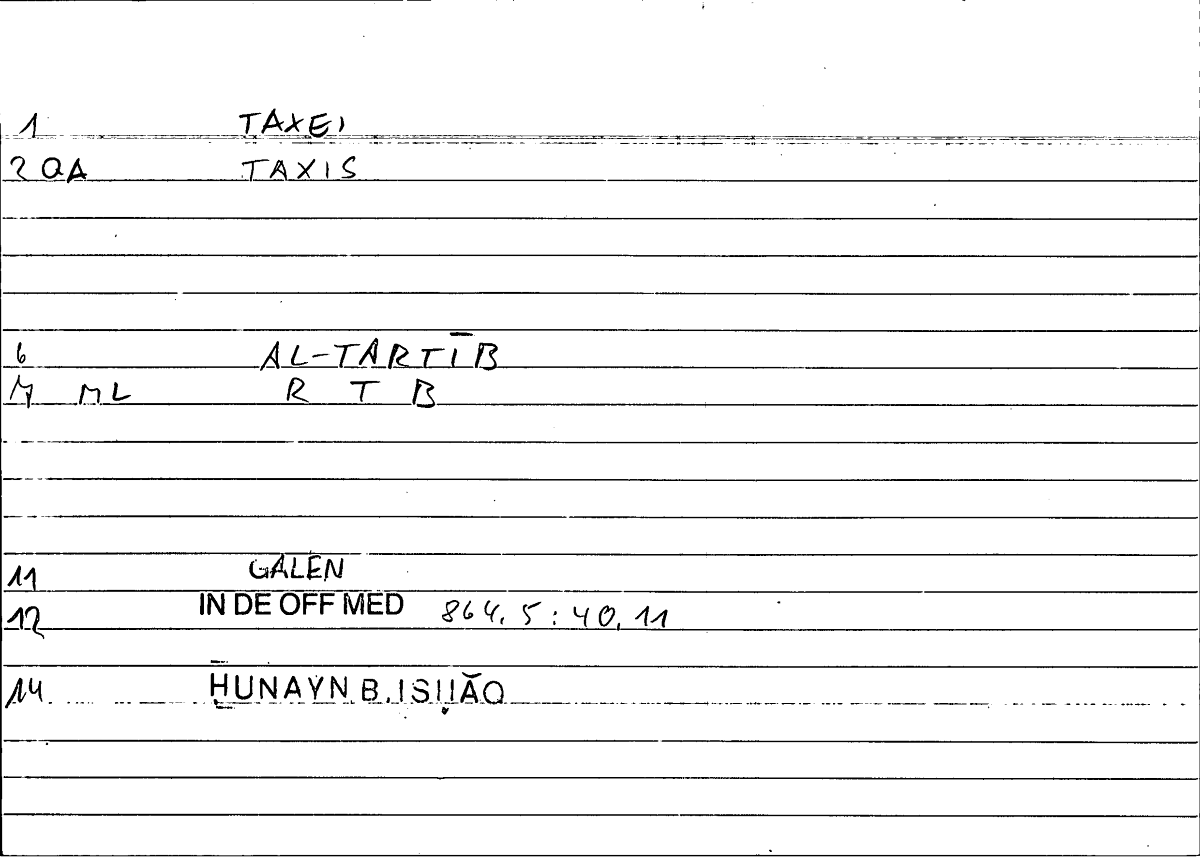 1 TAXEI
2 QA TAXIS
6 AL-TARTĪB
M ML R T B
11 GALEN
12 IN DE OFF MED 864.5:40.11
14 ḤUNAYN B. ISḤĀQ